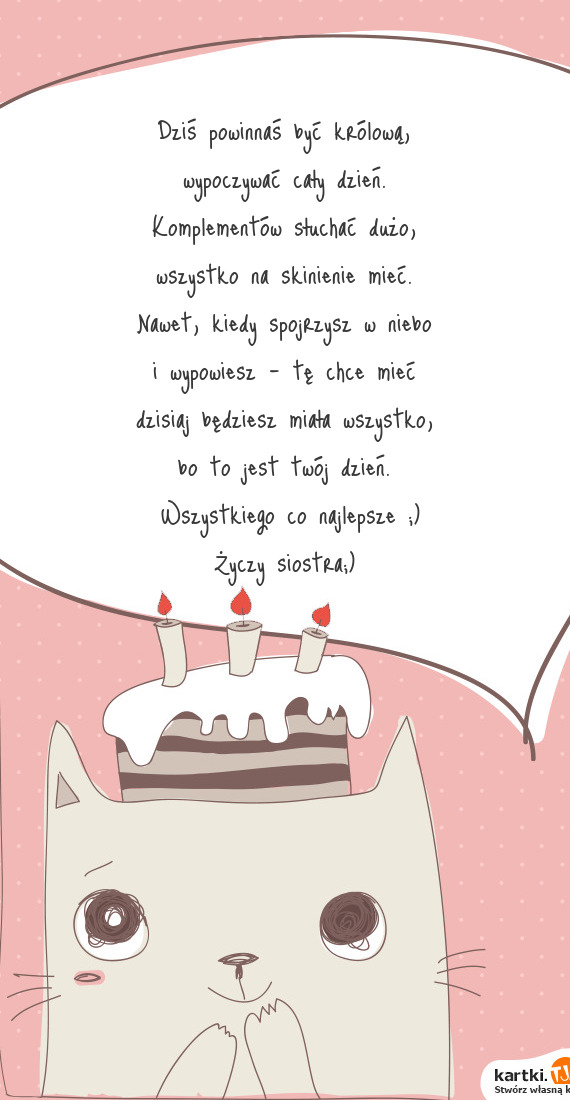 Dziś powinnaś być królową,
wypoczywać cały dzień.
Komplementów słuchać dużo,
wszystko na skinienie mieć.
Nawet, kiedy spojrzysz w niebo
i wypowiesz - tę chce mieć
dzisiaj będziesz miała wszystko,
bo to jest twój dzień.
Wszystkiego co najlepsze ;)
Życzy siostra;)
kartki.TJ
Stwórz własną k